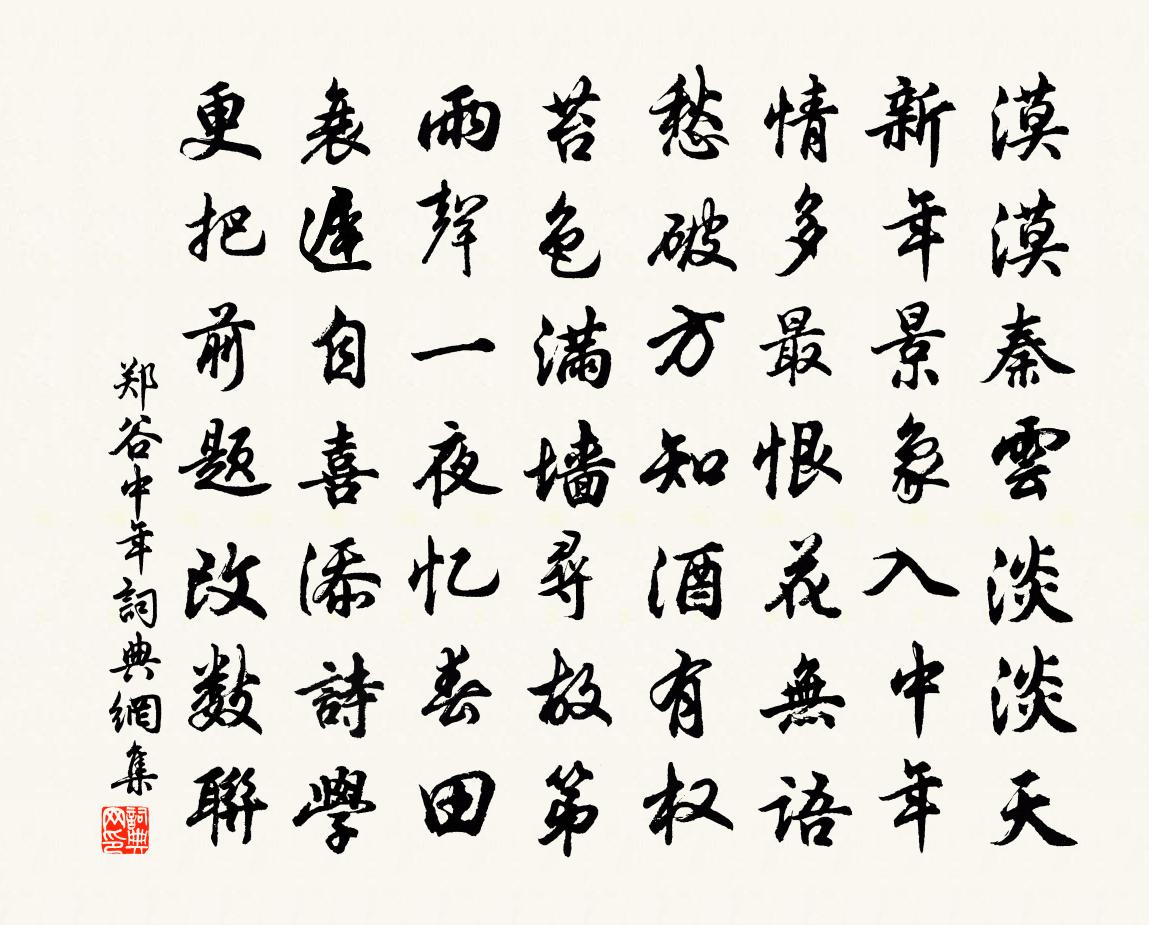 漠漠秦雲淡淡天
新年景象入中年
情多最恨花無語
愁破方知酒有权
苔色滿墻尋故第
雨聲一夜忆春田
衰遲自喜添詩學
更把前题改數聯
郑谷中年詞典網集
詞典
网印